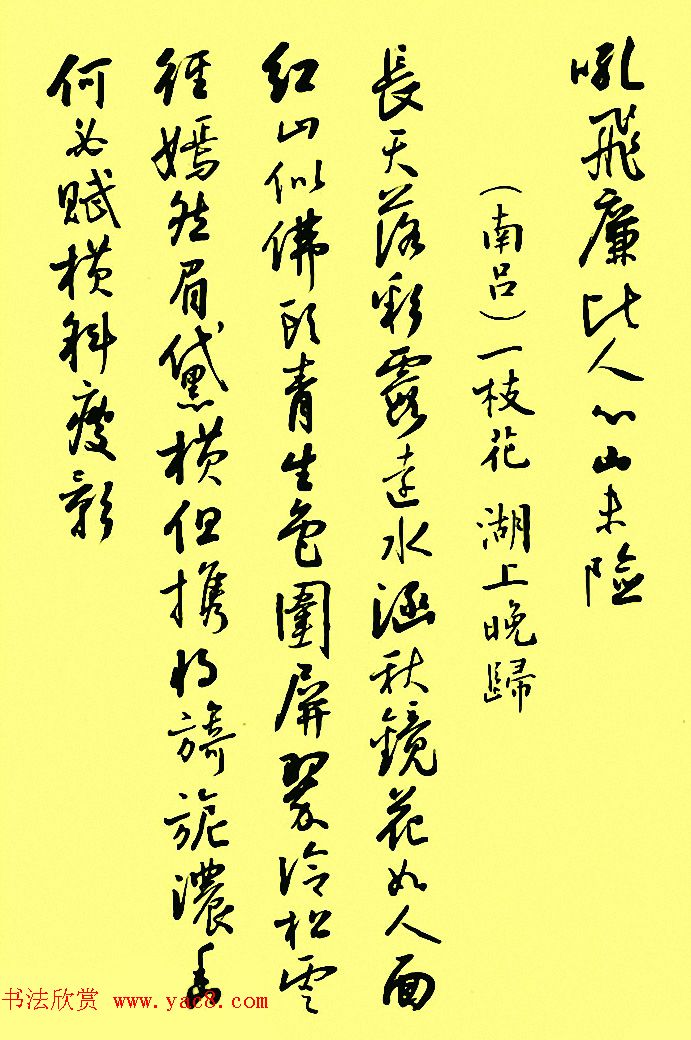 吼飛廉比人心山未險
（南吕）一枝花 湖上晚歸
長天落彩霞遠水涵秋鏡花如人面
紅山似佛頭青生色圍屏翠冷松雲
徑嫣然眉黛橫但携將旖旎濃香
何必賦橫斜瘦影
书法欣赏 www.yac8.com